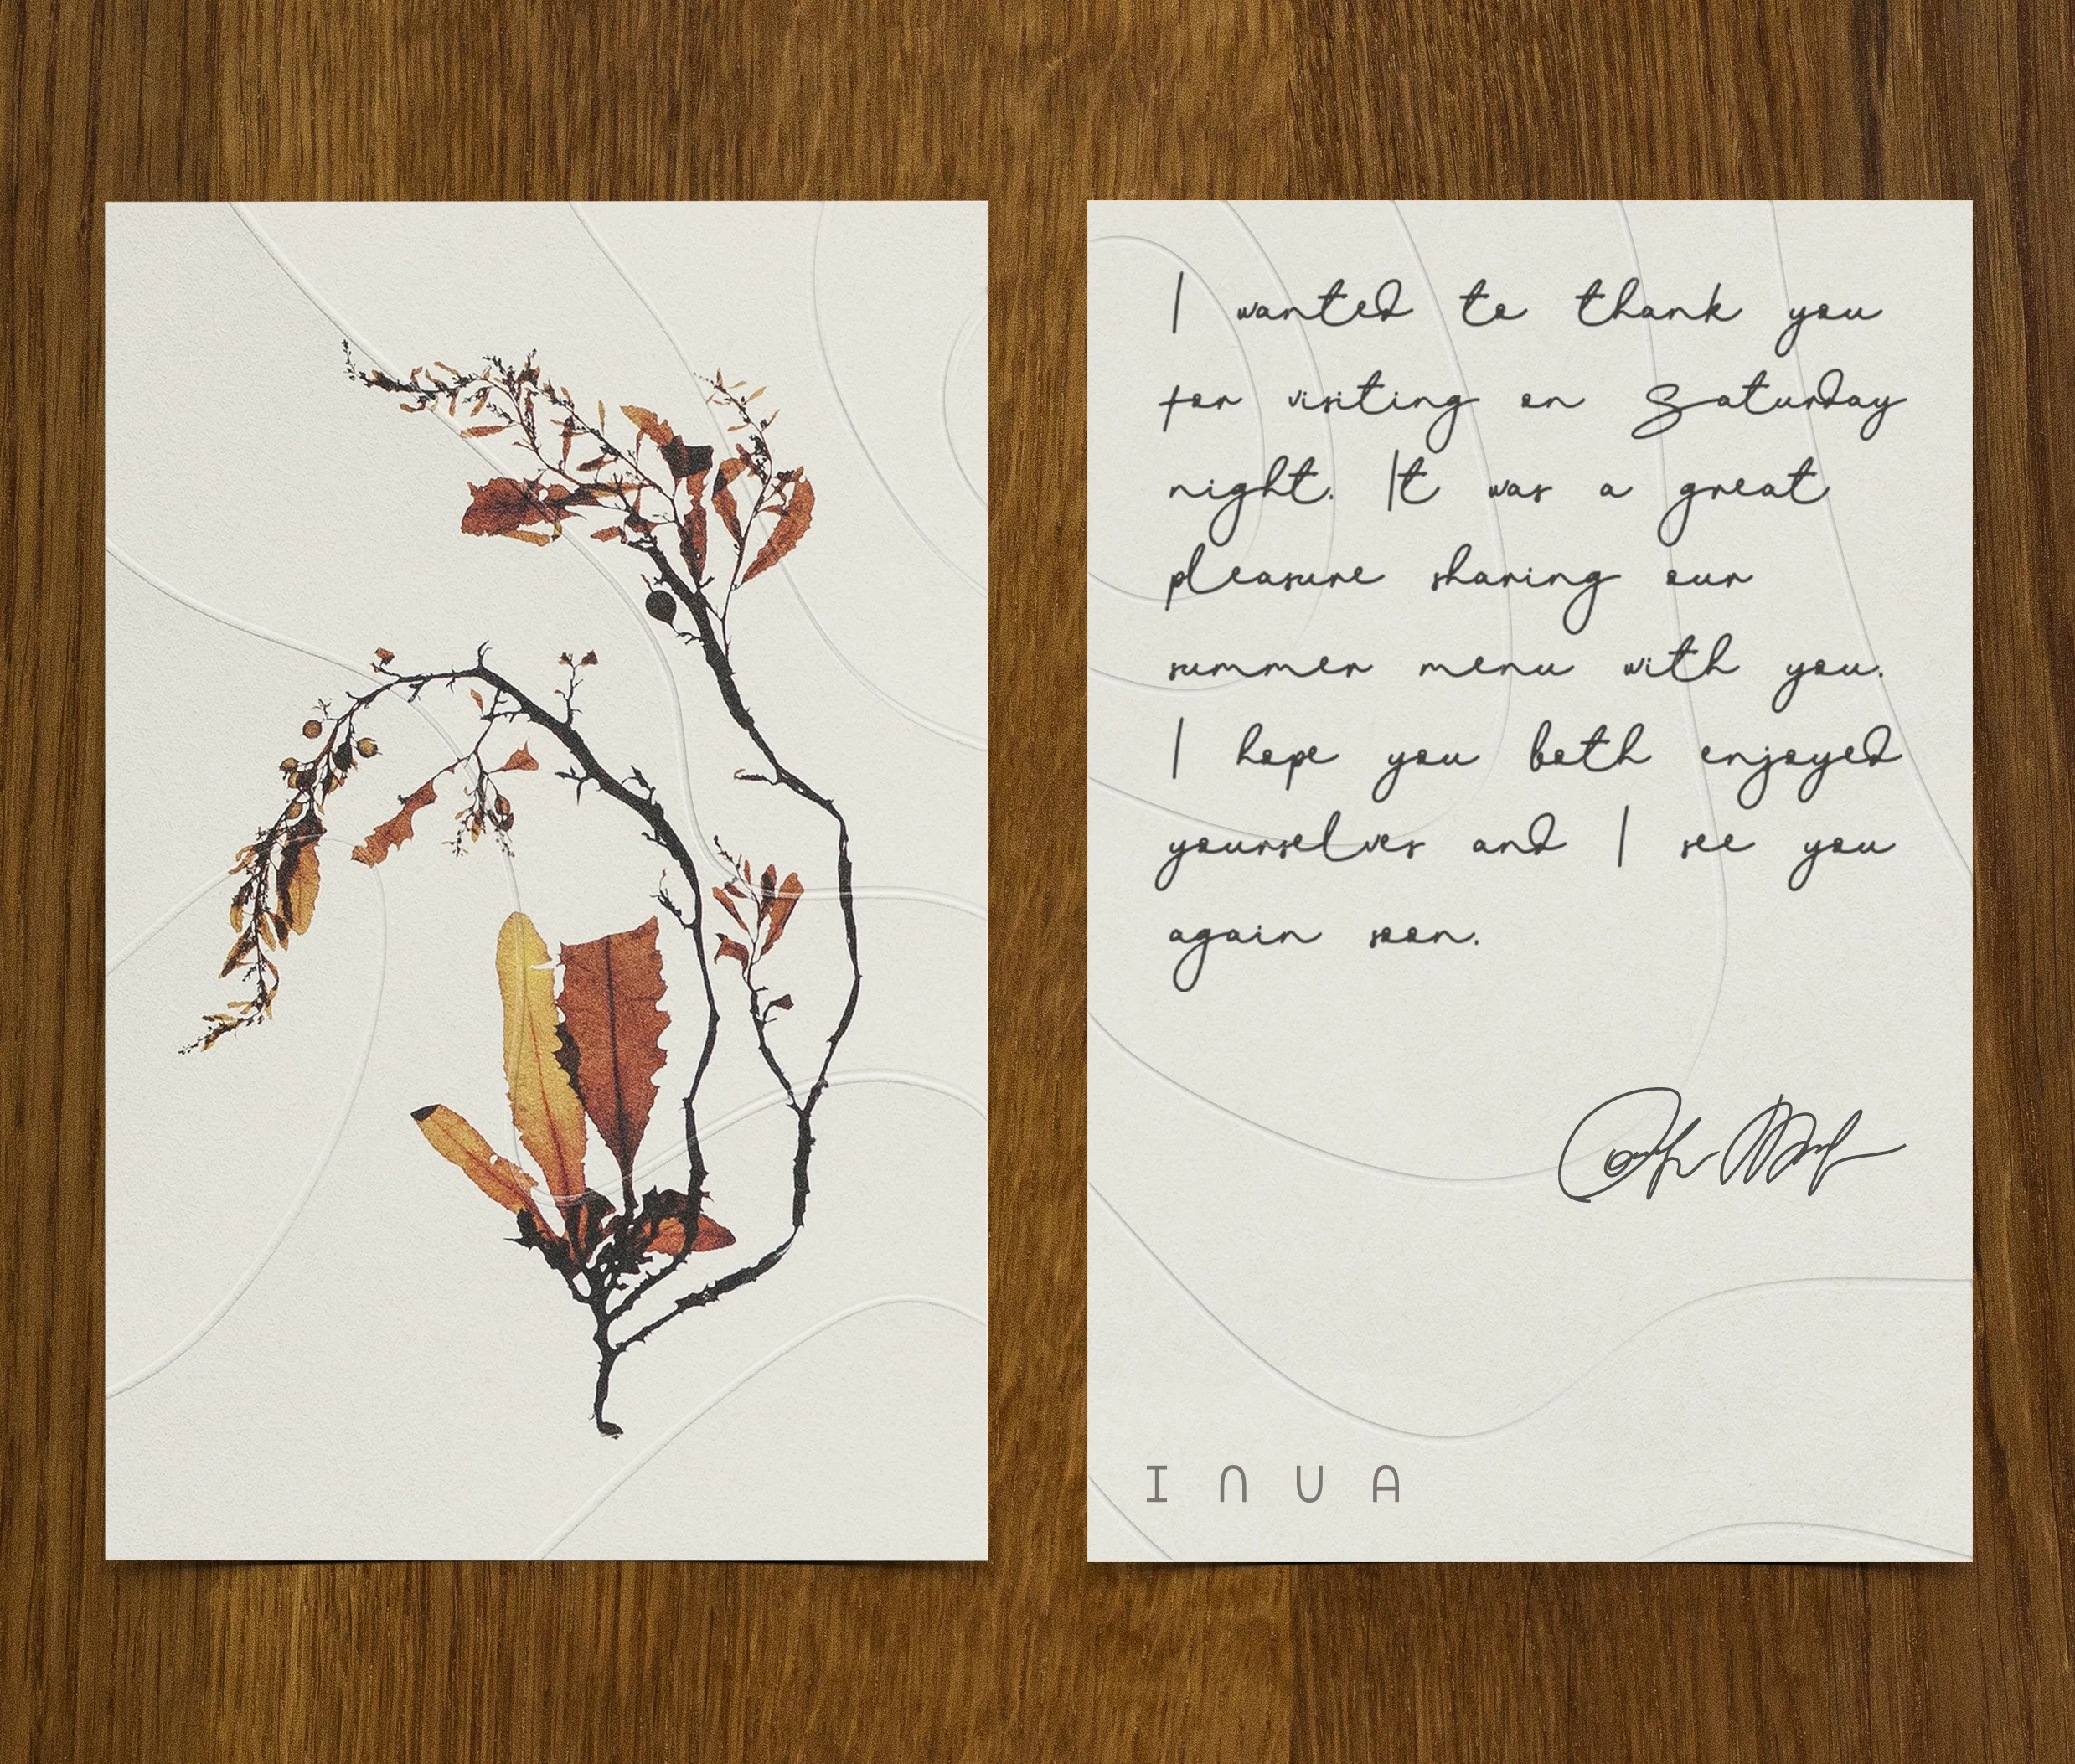 I wanted to thank you
for visiting on Saturday
night. It was a great
pleasure sharing our
summer menu with you.
I hope you both enjoyed
yourselves and I see you
again soon.
INUA